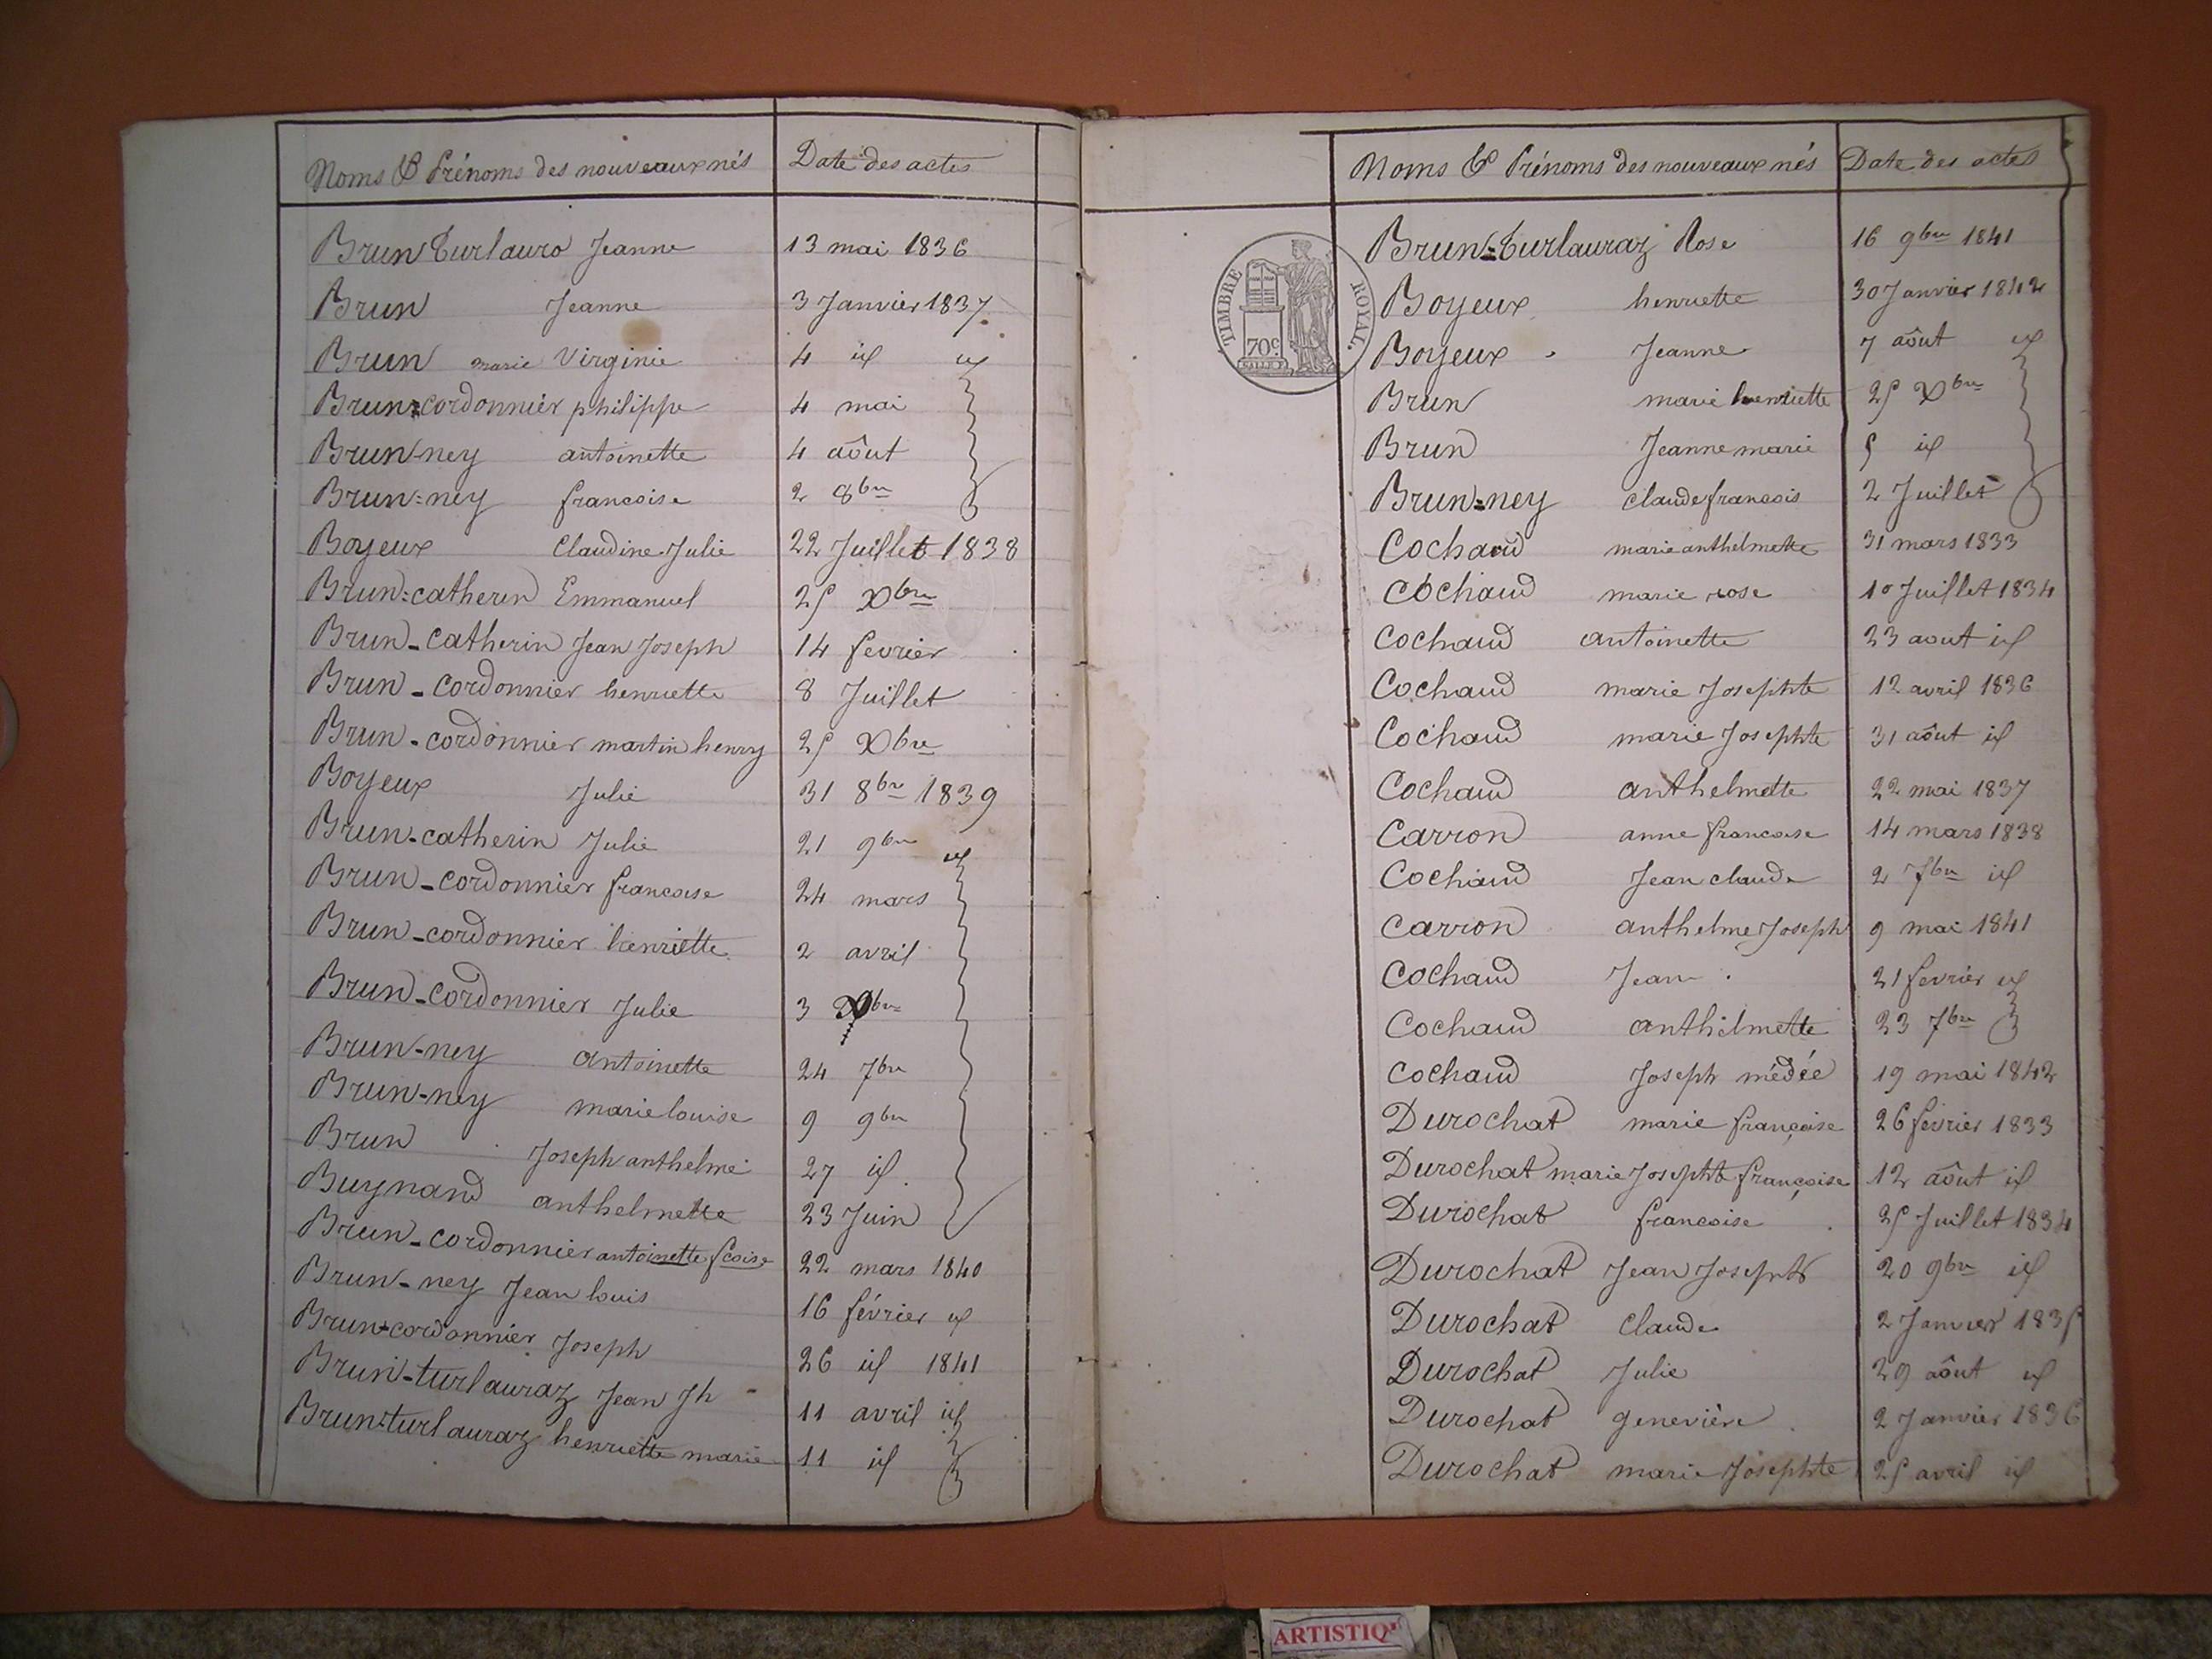 Noms & Prénoms des nouveaux nés Date des actes
Brun Turlauro Jeanne 13 mai 1836
Brun Jeanne 3 Janvier 1837
Brun marie Virginie 4 id id
Brun=cordonnier philippe 4 mai
Brun-ney antoinette 4 août
Brun=ney francoise 2 8bre
Boyeux Claudine Julie 22 Juillet 1838
Brun=catherin Emmanuel 25 Xbre
Brun-catherin Jean Joseph 14 fevrier
Brun-cordonnier henriette 8 Juillet
Brun-cordonnier martin henry 25 Xbre
Boyeux Julie 31 8bre 1839
Brun-catherin Julie 21 9bre id
Brun-cordonnier francoise 24 mars
Brun-cordonnier henriette 2 avril
Brun-cordonnier Julie 3 Xbre
Brun-ney antoinette 24 7bre
Brun-ney marie louise 9 9bre
Brun Joseph anthelme 27 id
Buynand anthelmette 23 Juin
Brun-cordonnier antoinette fcoise 22 mars 1840
Brun-ney Jean louis 16 février id
Brun-cordonnier Joseph 26 id 1841
Brun-turlauraz Jean Jh 11 avril id
Brun-turlauraz henriette marie 11 id
Noms & Prénoms des nouveaux nés Date des actes
TIMBRE ROYAL.
70c
Brun=Turlauraz Rose 16 9bre 1841
Boyeux henriette 30 Janvier 1842
Boyeux Jeanne 7 août id
Brun marie henriette 25 Xbre
Brun Jeanne marie 5 id
Brun=ney claude francois 2 Juillet
Cochaud marie anthelmette 31 mars 1833
Cochaud marie rose 10 Juillet 1834
Cochaud antoinette 23 aout id
Cochaud marie Josephte 12 avril 1836
Cochaud marie Josephte 31 août id
Cochaud anthelmette 22 mai 1837
Carron anne francoise 14 mars 1838
Cochaud Jean claude 2 7bre id
Carron anthelme Joseph 9 mai 1841
Cochaud Jean 21 fevrier id
Cochaud anthelmette 23 7bre
Cochaud Joseph médée 19 mai 1842
Durochat marie françoise 26 février 1833
Durochat marie Josephte françoise 12 août id
Durochat francoise 25 Juillet 1834
Durochat Jean Joseph 20 9bre id
Durochat Claude 2 Janvier 1835
Durochat Julie 29 août id
Durochat genevière 2 Janvier 1836
Durochat marie Josephte 25 avril id
ARTISTIQ